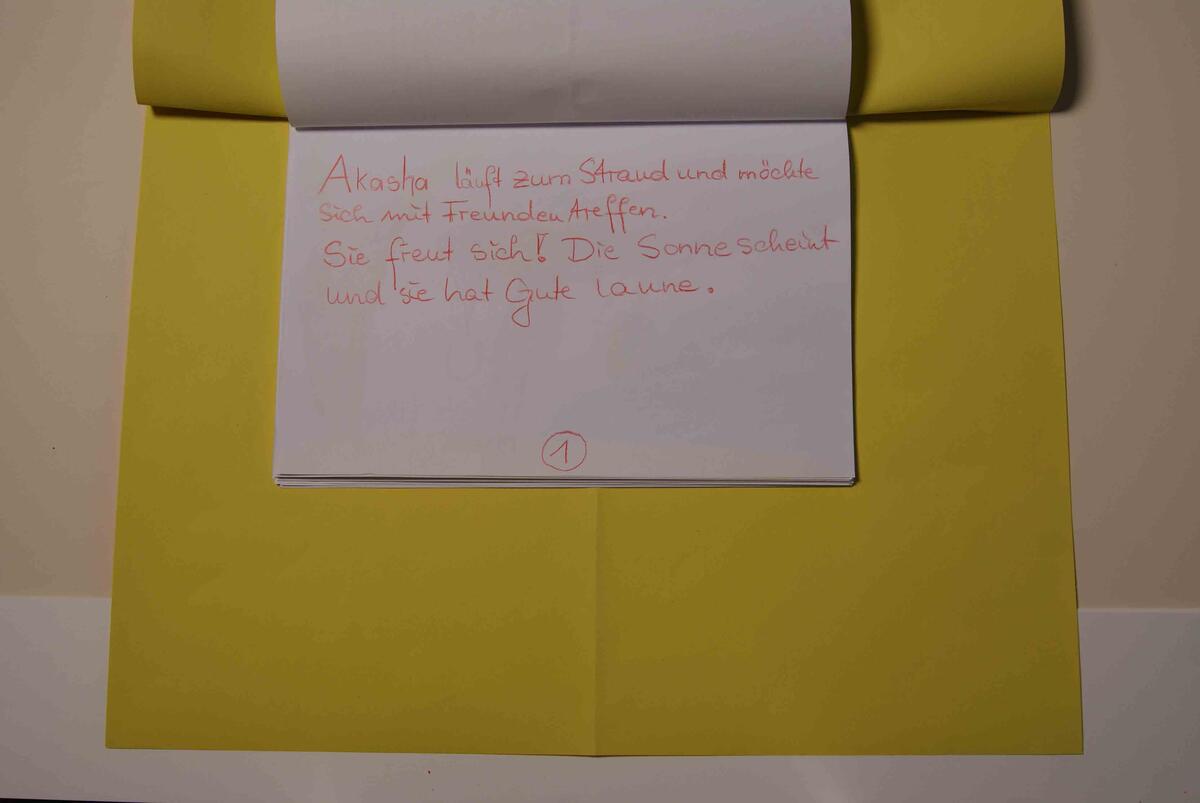 Akasha läuft zum Strand und möchte
sich mit Freunden treffen.
Sie freut sich! Die Sonne scheint
und sie hat Gute laune.
1